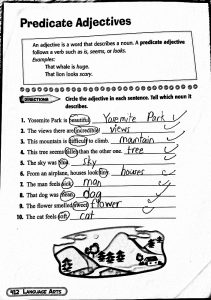 Predicate Adjectives
An adjective is a word that describes a noun. A predicate adjective
follows a verb such as is, seems, or looks.
Examples:
That whale is huge.
That lion looks scary.
DIRECTIONS Circle the adjective in each sentence. Tell which noun it
describes.
1. Yosemite Park is beautiful. Yosemite Park
2. The views there are incredible. views
3. This mountain is difficult to climb. mountain
4. This tree seems taller than the other one. tree
5. The sky was blue. sky
6. From an airplane, houses look tiny. houses
7. The man feels sick. man
8. That dog was mean. dog
9. The flower smelled sweet. flower
10. The cat feels soft. cat
412 LANGUAGE ARTS